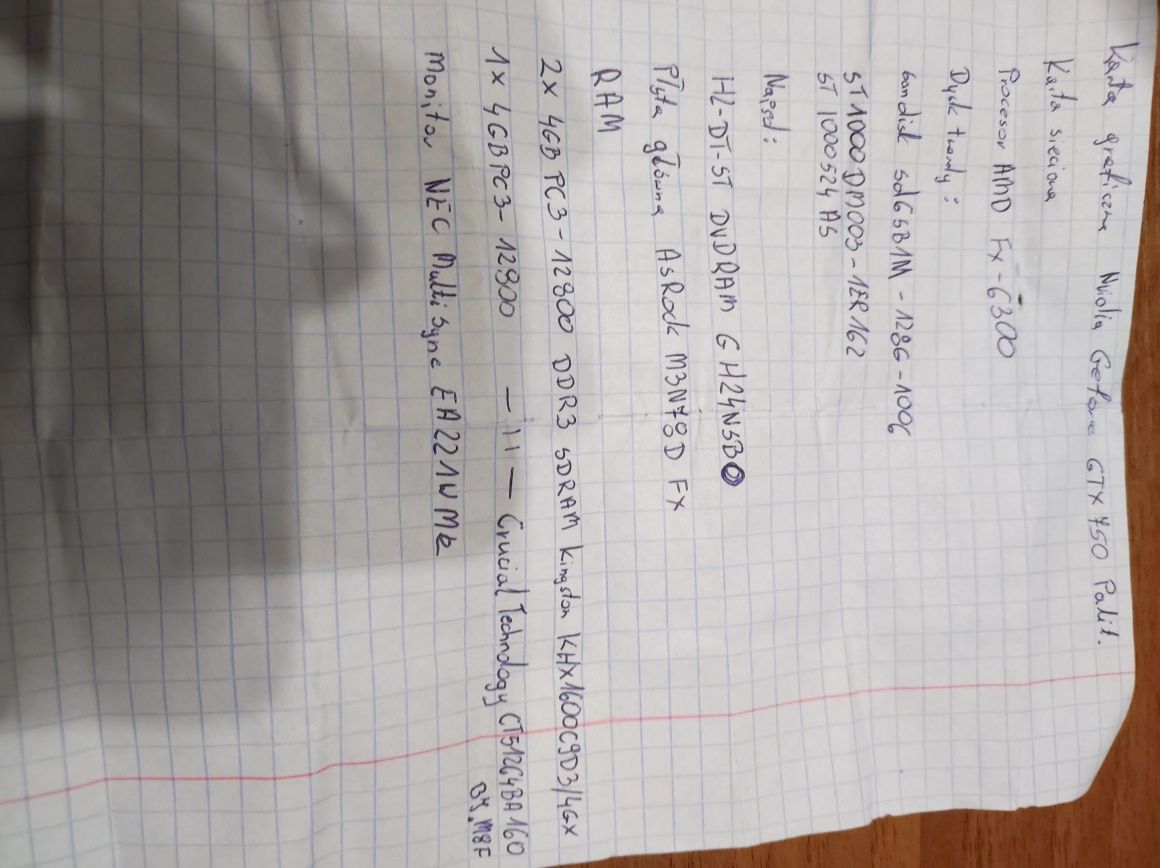 Karta graficzna Nvidia Geforce GTX 750 Palit.
Karta sieciowa
Procesor AMD Fx-6300
Dysk twardy:
Sandisk sd6sB1M-128G-1006
ST1000DM003-1ER162
ST1000524AS
Napęd:
HL-DT-ST DVDRAM GH24NSB0
Płyta główna AsRock M3N78D FX
RAM
2x 4GB PC3-12800 DDR3 SDRAM Kingston KHX1600C9D3/4GX
1x 4GB PC3-12800 — 11 — Crucial Technology CT51264BA160
BJ.M8F
Monitor NEC Multi Sync EA221WMe